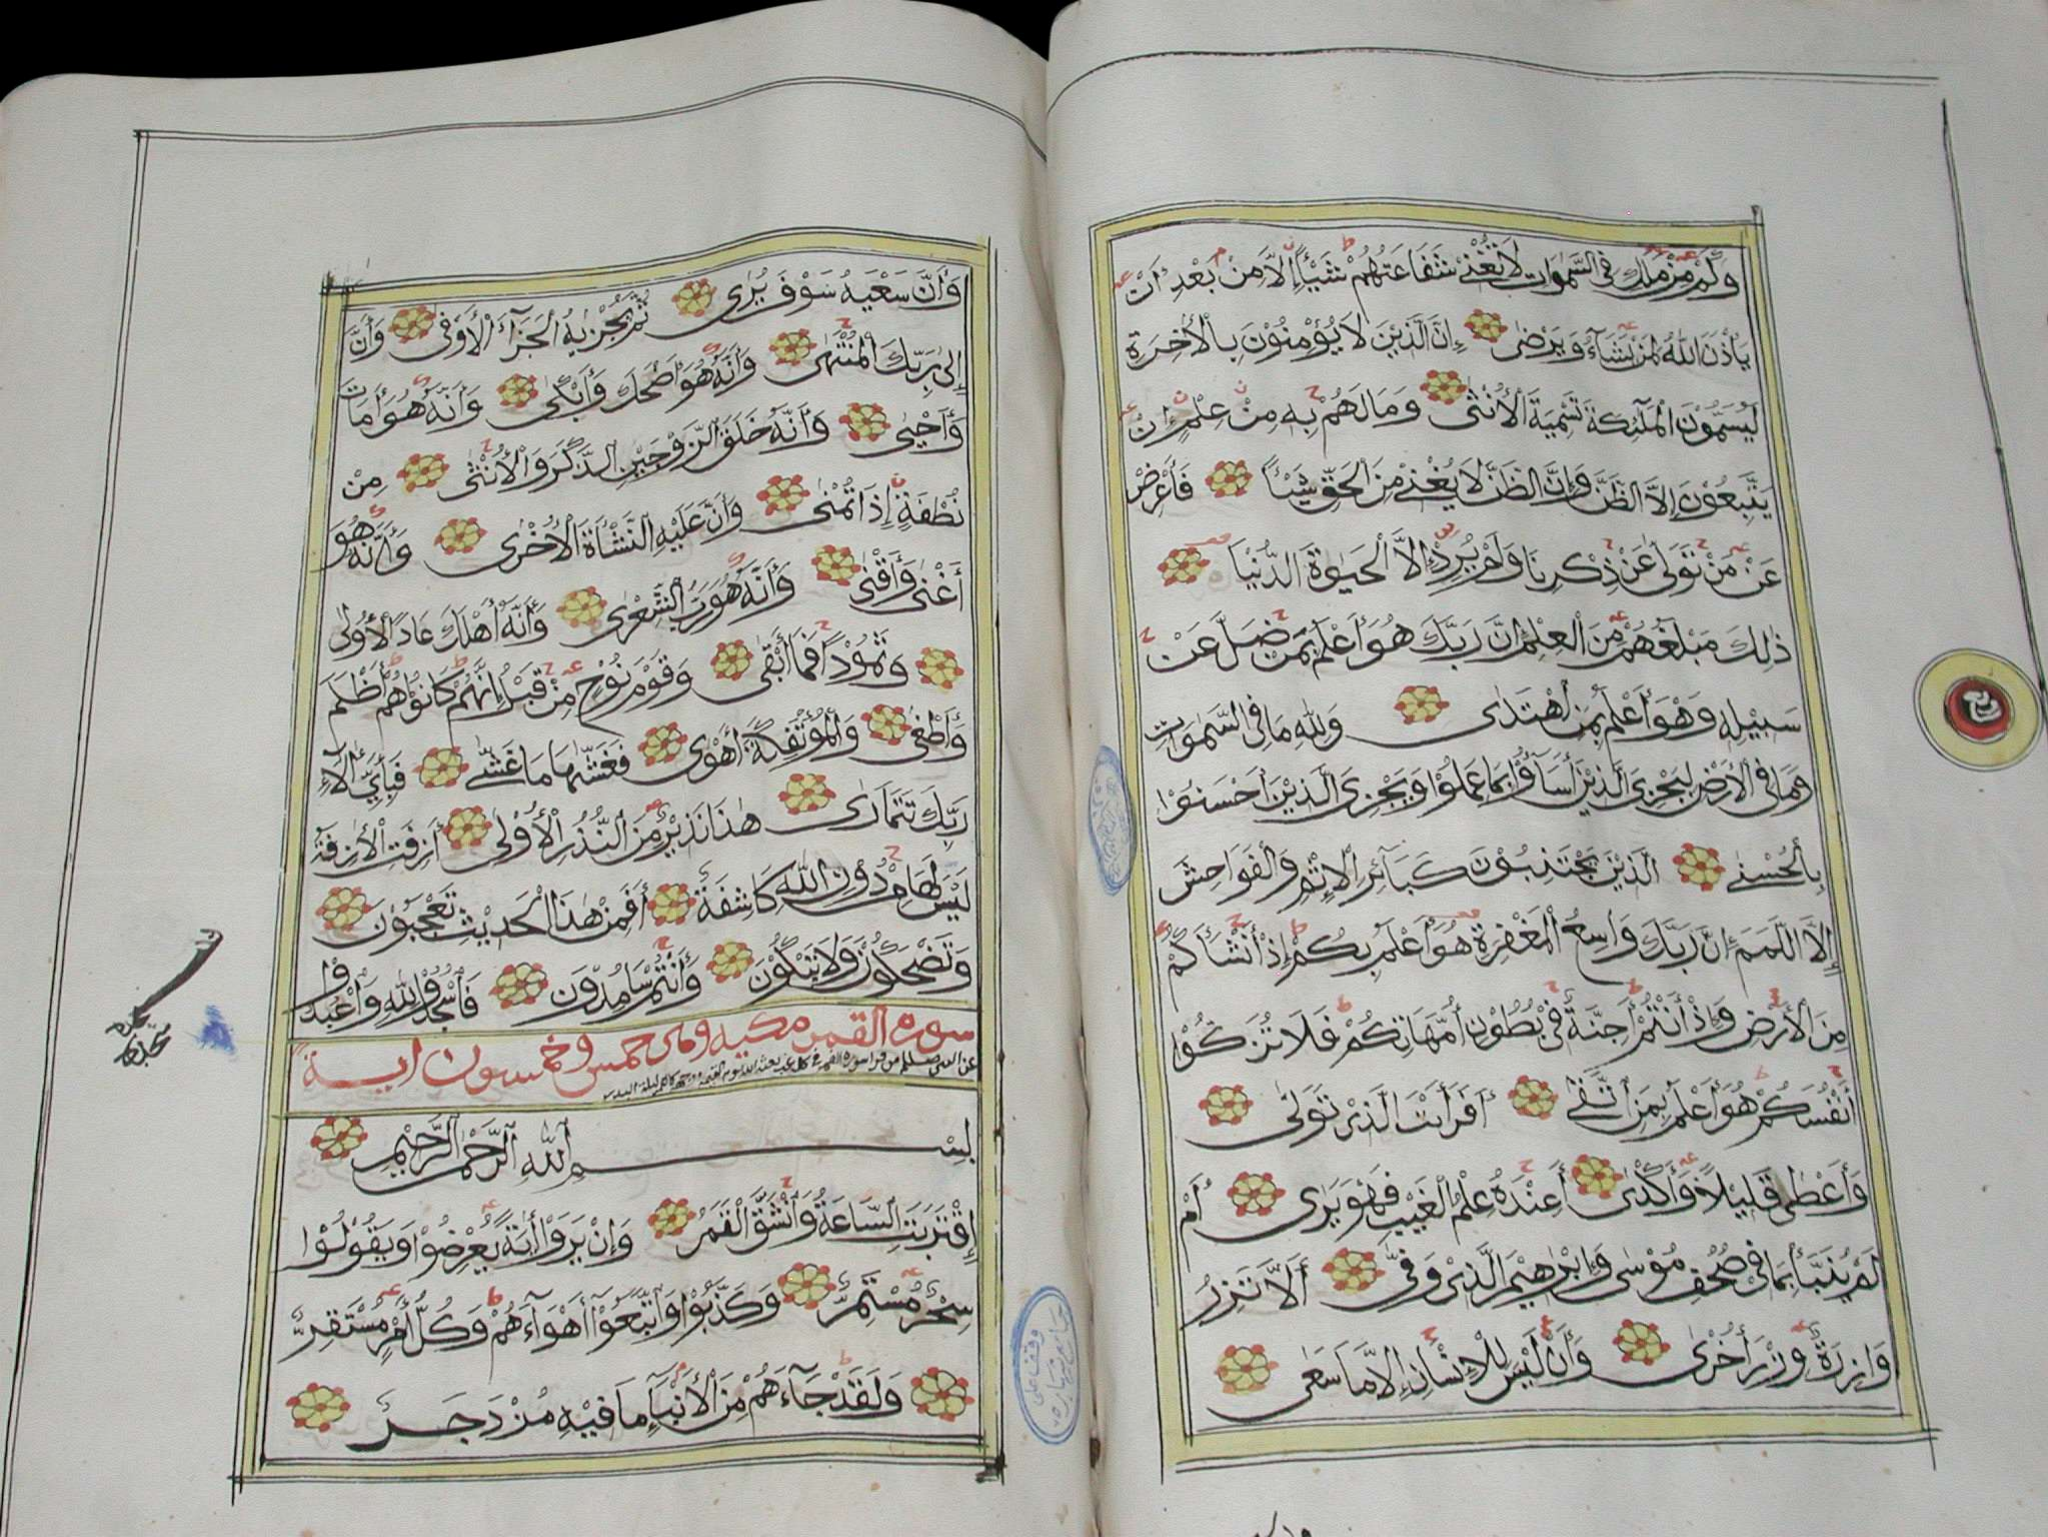 وَكَمْ مِنْ مَلَكٍ فِي السَّمٰوَاتِ لَا تُغْنِي شَفَاعَتُهُمْ شَيْئًا إِلَّا مِنْ بَعْدِ أَنْ
يَأْذَنَ اللّٰهُ لِمَنْ يَشَآءُ وَيَرْضٰى إِنَّ الَّذِيْنَ لَا يُؤْمِنُوْنَ بِالْأٰخِرَةِ
لَيُسَمُّوْنَ الْمَلٰٓئِكَةَ تَسْمِيَةَ الْأُنْثٰى وَمَا لَهُمْ بِهٖ مِنْ عِلْمٍ إِنْ
يَتَّبِعُوْنَ إِلَّا الظَّنَّ وَإِنَّ الظَّنَّ لَا يُغْنِيْ مِنَ الْحَقِّ شَيْئًا فَأَعْرِضْ
عَنْ مَّنْ تَوَلّٰى عَنْ ذِكْرِنَا وَلَمْ يُرِدْ إِلَّا الْحَيٰوةَ الدُّنْيَا
ذٰلِكَ مَبْلَغُهُمْ مِنَ الْعِلْمِ إِنَّ رَبَّكَ هُوَ أَعْلَمُ بِمَنْ ضَلَّ عَنْ
سَبِيْلِهٖ وَهُوَ أَعْلَمُ بِمَنِ اهْتَدٰى وَلِلّٰهِ مَا فِي السَّمٰوَاتِ
وَمَا فِي الْأَرْضِ لِيَجْزِيَ الَّذِيْنَ أَسَآؤُا بِمَا عَمِلُوْا وَيَجْزِيَ الَّذِيْنَ أَحْسَنُوْا
بِالْحُسْنٰى الَّذِيْنَ يَجْتَنِبُوْنَ كَبَآئِرَ الْإِثْمِ وَالْفَوَاحِشَ
إِلَّا اللَّمَمَ إِنَّ رَبَّكَ وَاسِعُ الْمَغْفِرَةِ هُوَ أَعْلَمُ بِكُمْ إِذْ أَنْشَأَكُمْ
مِنَ الْأَرْضِ وَإِذْ أَنْتُمْ أَجِنَّةٌ فِيْ بُطُوْنِ أُمَّهَاتِكُمْ فَلَا تُزَكُّوْا
أَنْفُسَكُمْ هُوَ أَعْلَمُ بِمَنِ اتَّقٰى أَفَرَأَيْتَ الَّذِيْ تَوَلّٰى
وَأَعْطٰى قَلِيْلًا وَأَكْدٰى أَعِنْدَهُ عِلْمُ الْغَيْبِ فَهُوَ يَرٰى أَمْ
لَمْ يُنَبَّأْ بِمَا فِيْ صُحُفِ مُوْسٰى وَإِبْرٰهِيْمَ الَّذِيْ وَفّٰى أَلَّا تَزِرُ
وَازِرَةٌ وِزْرَ أُخْرٰى وَأَنْ لَيْسَ لِلْإِنْسَانِ إِلَّا مَا سَعٰى
وَأَنَّ سَعْيَهُ سَوْفَ يُرٰى ثُمَّ يُجْزٰيهُ الْجَزَآءَ الْأَوْفٰى وَأَنَّ
إِلٰى رَبِّكَ الْمُنْتَهٰى وَأَنَّهُ هُوَ أَضْحَكَ وَأَبْكٰى وَأَنَّهُ هُوَ أَمَاتَ
وَأَحْيٰى وَأَنَّهُ خَلَقَ الزَّوْجَيْنِ الذَّكَرَ وَالْأُنْثٰى مِنْ
نُطْفَةٍ إِذَا تُمْنٰى وَأَنَّ عَلَيْهِ النَّشْأَةَ الْأُخْرٰى وَأَنَّهُ هُوَ
أَغْنٰى وَأَقْنٰى وَأَنَّهُ هُوَ رَبُّ الشِّعْرٰى وَأَنَّهُ أَهْلَكَ عَادًا الْأُوْلٰى
وَثَمُوْدَا فَمَا أَبْقٰى وَقَوْمَ نُوْحٍ مِنْ قَبْلُ إِنَّهُمْ كَانُوْا هُمْ أَظْلَمَ
وَأَطْغٰى وَالْمُؤْتَفِكَةَ أَهْوٰى فَغَشّٰىهَا مَا غَشّٰى فَبِأَيِّ اٰلَآءِ
رَبِّكَ تَتَمَارٰى هٰذَا نَذِيْرٌ مِنَ النُّذُرِ الْأُوْلٰى أَزِفَتِ الْاٰزِفَةُ
لَيْسَ لَهَا مِنْ دُوْنِ اللّٰهِ كَاشِفَةٌ أَفَمِنْ هٰذَا الْحَدِيْثِ تَعْجَبُوْنَ
وَتَضْحَكُوْنَ وَلَا تَبْكُوْنَ وَأَنْتُمْ سَامِدُوْنَ فَاسْجُدُوْا لِلّٰهِ وَاعْبُدُوْا
سورة القمر مكية وهى خمس وخمسون اية
عن النبى صلعم من قرا سورة القمر فى كل غب بعثه الله يوم القيمة ووجهه كالقمر ليلة البدر
بِسْمِ اللّٰهِ الرَّحْمٰنِ الرَّحِيْمِ
اِقْتَرَبَتِ السَّاعَةُ وَانْشَقَّ الْقَمَرُ وَإِنْ يَرَوْا اٰيَةً يُعْرِضُوْا وَيَقُوْلُوْا
سِحْرٌ مُسْتَمِرٌّ وَكَذَّبُوْا وَاتَّبَعُوْا أَهْوَآءَهُمْ وَكُلُّ أَمْرٍ مُسْتَقِرٌّ
وَلَقَدْ جَآءَهُمْ مِنَ الْأَنْبَآءِ مَا فِيْهِ مُزْدَجَرٌ
سجدة
وقف على